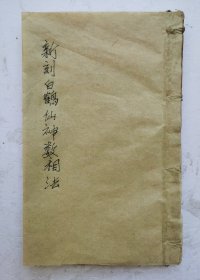 新刻白鶴仙神数相法